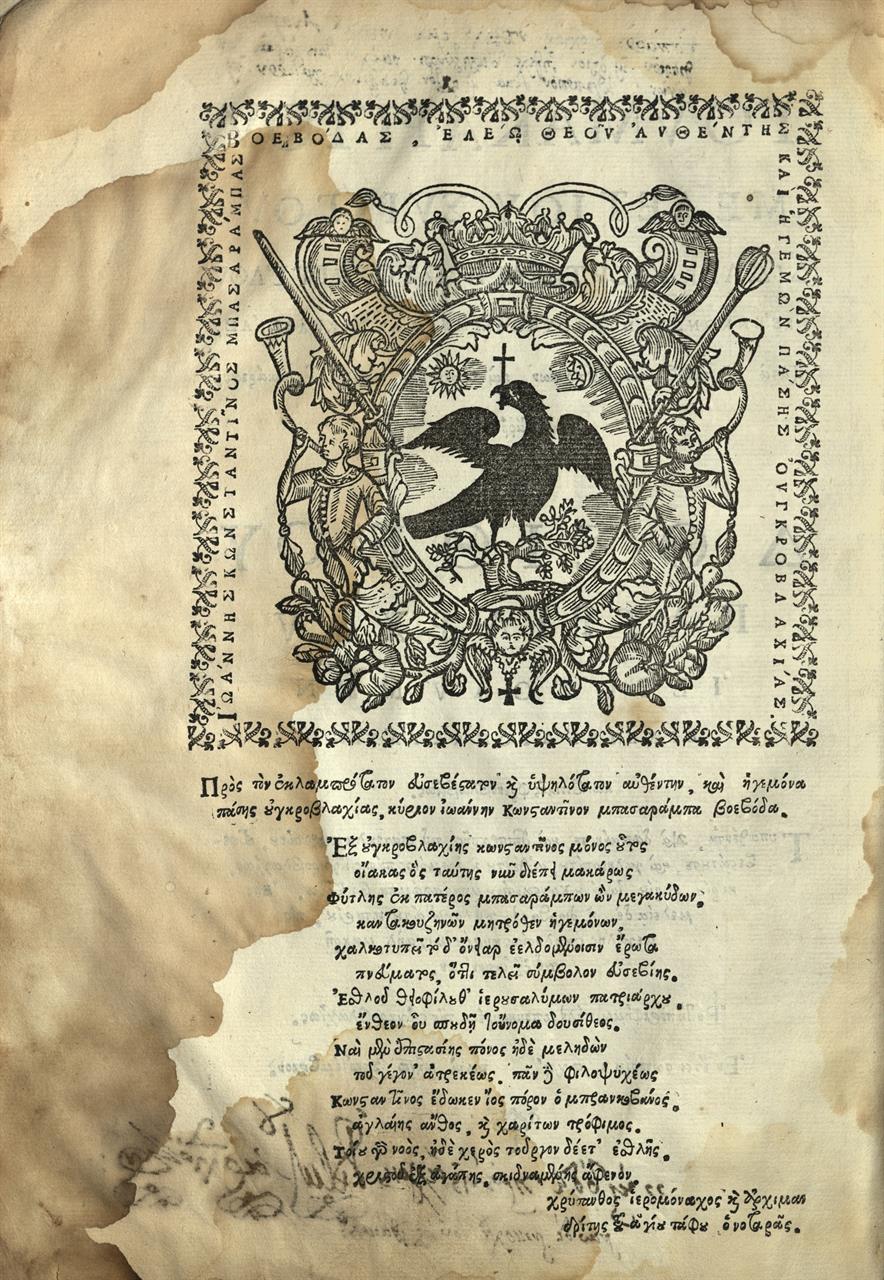 ἸΩΆΝΝΗΣ ΚΩΝΣΤΑΝΤῖΝΟΣ ΜΠΑΣΑΡΆΜΠΑΣ
ΒΟΕΒΌΔΑΣ, ἘΛΈΩ ΘΕΟῦ ἈΥΘΈΝΤΗΣ
ΚΑῚ ἩΓΕΜῺΝ ΠΆΣΗΣ ὈΥΓΚΡΟΒΛΑΧΊΑΣ.
Πρὸς τὸν ἐκλαμπρότατον εὐσεβέστατον κὶ ὑψηλότατον αὐθέντην, καὶ ἡγεμόνα
πάσης οὐγκροβλαχίας, κύριον ἰωάννην Κωνσταντῖνον μπασαράμπα βοεβόδα.
Ἐξ οὐγκροβλαχίης κωνσταντῖνος μόνος οὗτος
οἴακας ὃς ταύτης νῦν διέπει μακάρως
Φύτλης ἐκ πατέρος μπασαράμπων ὢν μεγακύδων,
καντακουζηνῶν μητρόθεν ἡγεμόνων,
χαλκοτυπεῖ τόδ' ὄνειαρ ἐελδομένοισιν ἔρωτα
πνεύματος, ὅττι τελεῖ σύμβολον εὐσεβίης.
Ἐσθλοῦ θειοφίλου θ' ἱερουσαλύμων πατριάρχου,
ἔνθεον οὗ σπουδῇ τοὔνομα δουσίθεος.
Ναὶ μὲν ἐπιστασίης πόνος ἠδὲ μεληδὼν
τοῦ γέγον' ἀτρεκέως, πᾶν δὲ φιλοψυχέως
Κωνσταντῖνος ἔδωκεν ἑὸς πόρον ὁ μπρανκοβάνος,
ἀγλαΐης ἄνθος, κὶ χαρίτων τρόφιμος.
Τοίου γὰρ νοὸς, ἠδὲ χερὸς τοὖργον δέετ' ἐσθλῆς,
χριστοῦ ἐξ ἀγάπης, σκιδναμένης ἄφενον,
χρύσανθος ἱερομόναχος κὶ ἀρχιμαν
δρίτης τοῦ ἁγίου τάφου ὁ νοταρᾶς.